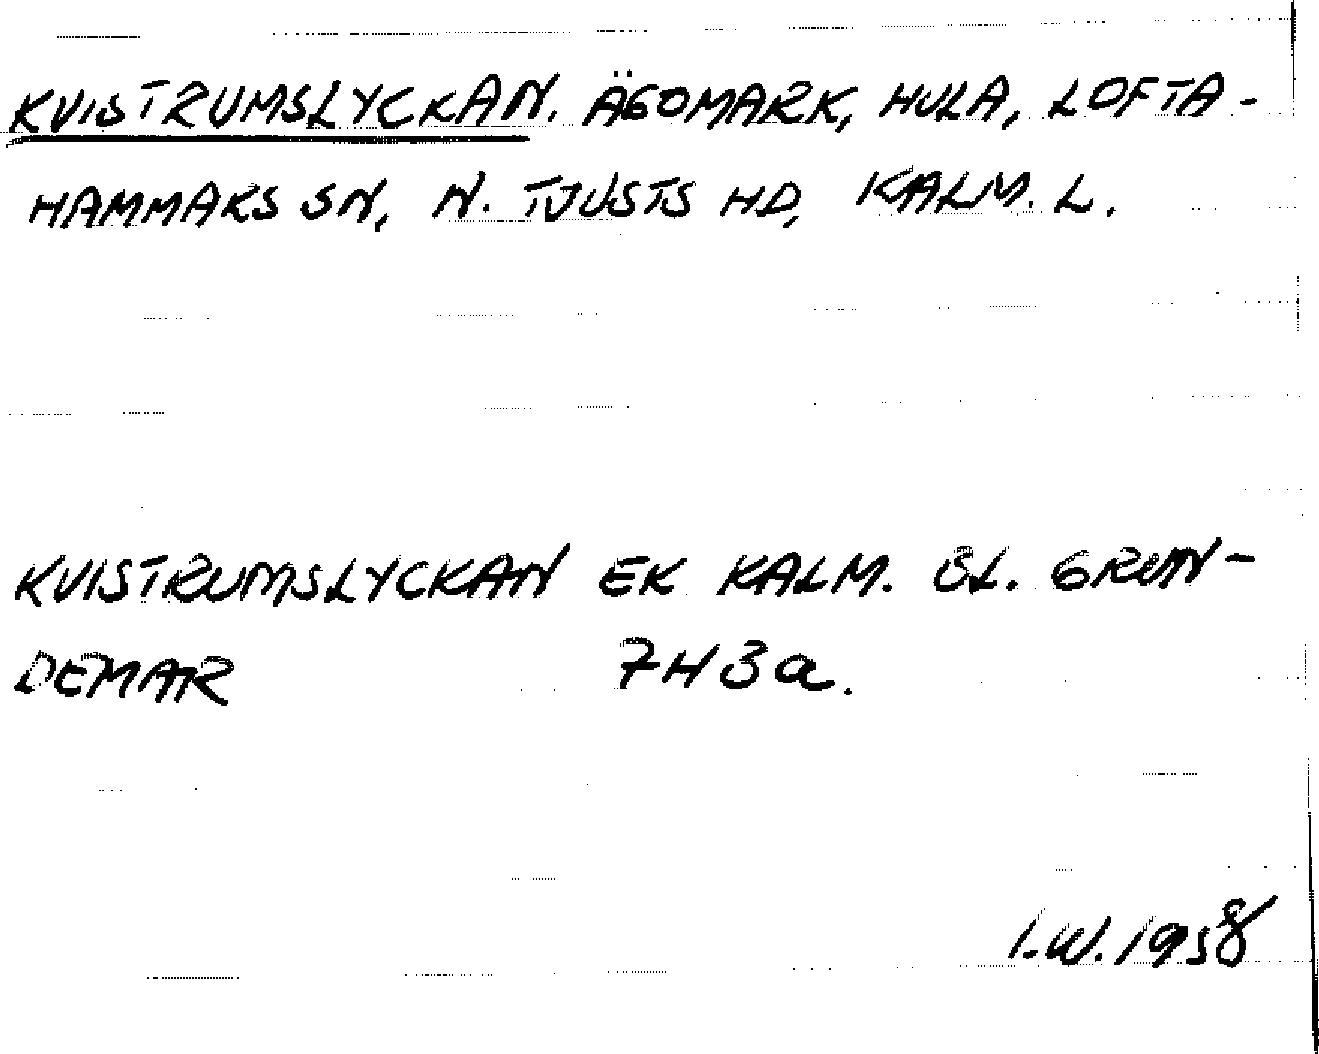 KVISTRUMSLYCKAN. ÄGOMARK, HULA, LOFTA-
HAMMARS SN, N. TJUSTS HD, KALM. L.
KVISTRUMSLYCKAN EK KALM. BL. GRUN-
DEMAR 7H3a.
I.W. 1958